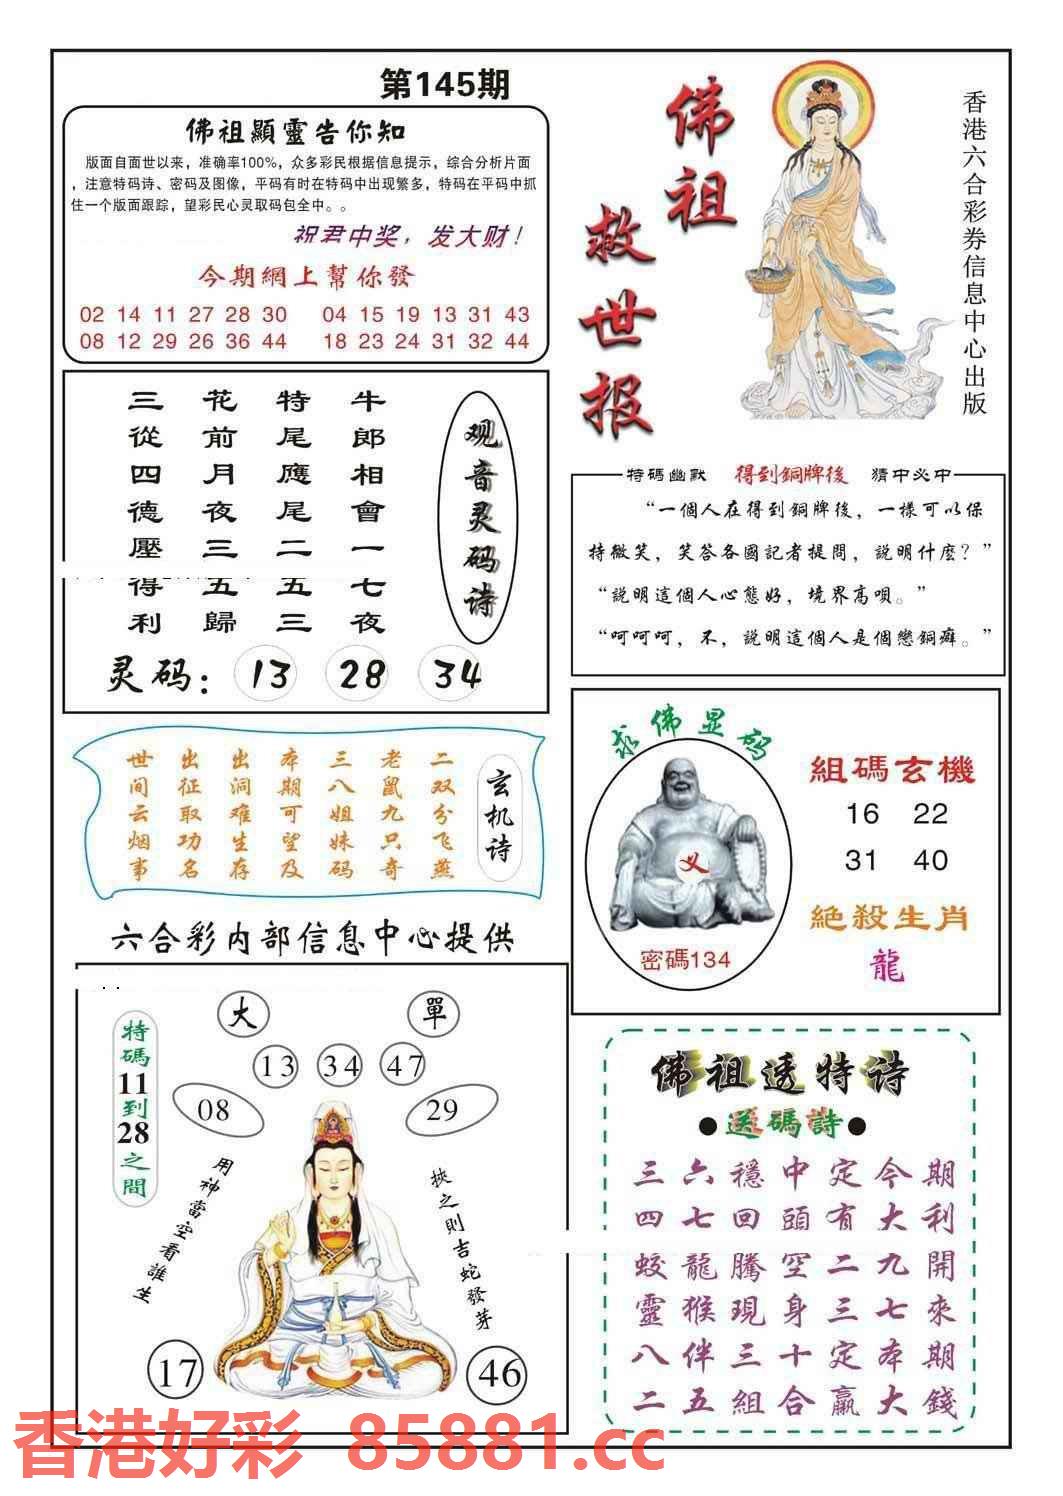 第145期
佛祖顯靈告你知
版面自面世以来，准确率100%，众多彩民根据信息提示，综合分析片面
，注意特码诗、密码及图像，平码有时在特码中出现繁多，特码在平码中抓
住一个版面跟踪，望彩民心灵取码包全中。。
祝君中奖，发大财！
今期網上幫你發
02 14 11 27 28 30 04 15 19 13 31 43
08 12 29 26 36 44 18 23 24 31 32 44
佛祖
救世报
香港六合彩券信息中心出版
观音灵码诗
牛郎相會一七夜
特尾應尾二五三
花前月夜三五歸
三從四德壓得利
灵码：13 28 34
特碼幽默 得到銅牌後 猜中必中
“一個人在得到銅牌後，一樣可以保
持微笑，笑答各國記者提問，説明什麽？”
“説明這個人心態好，境界高唄。”
“呵呵呵，不，説明這個人是個戀銅癖。”
玄机诗
二双分飞燕
老鼠九只奇
三八姐妹码
本期可望及
出洞难生存
出征取功名
世间云烟事
求佛显码
义
密碼134
組碼玄機
16 22
31 40
絕殺生肖
龍
六合彩内部信息中心提供
大 單
13 34 47
08 29
特碼11到28之間
用神當空看誰生
挾之則吉蛇發芽
17 46
佛祖透特诗
●送碼詩●
三六穩中定今期
四七回頭有大利
蛟龍騰空二九開
靈猴現身三七來
八伴三十定本期
二五組合贏大錢
香港好彩 85881.cc